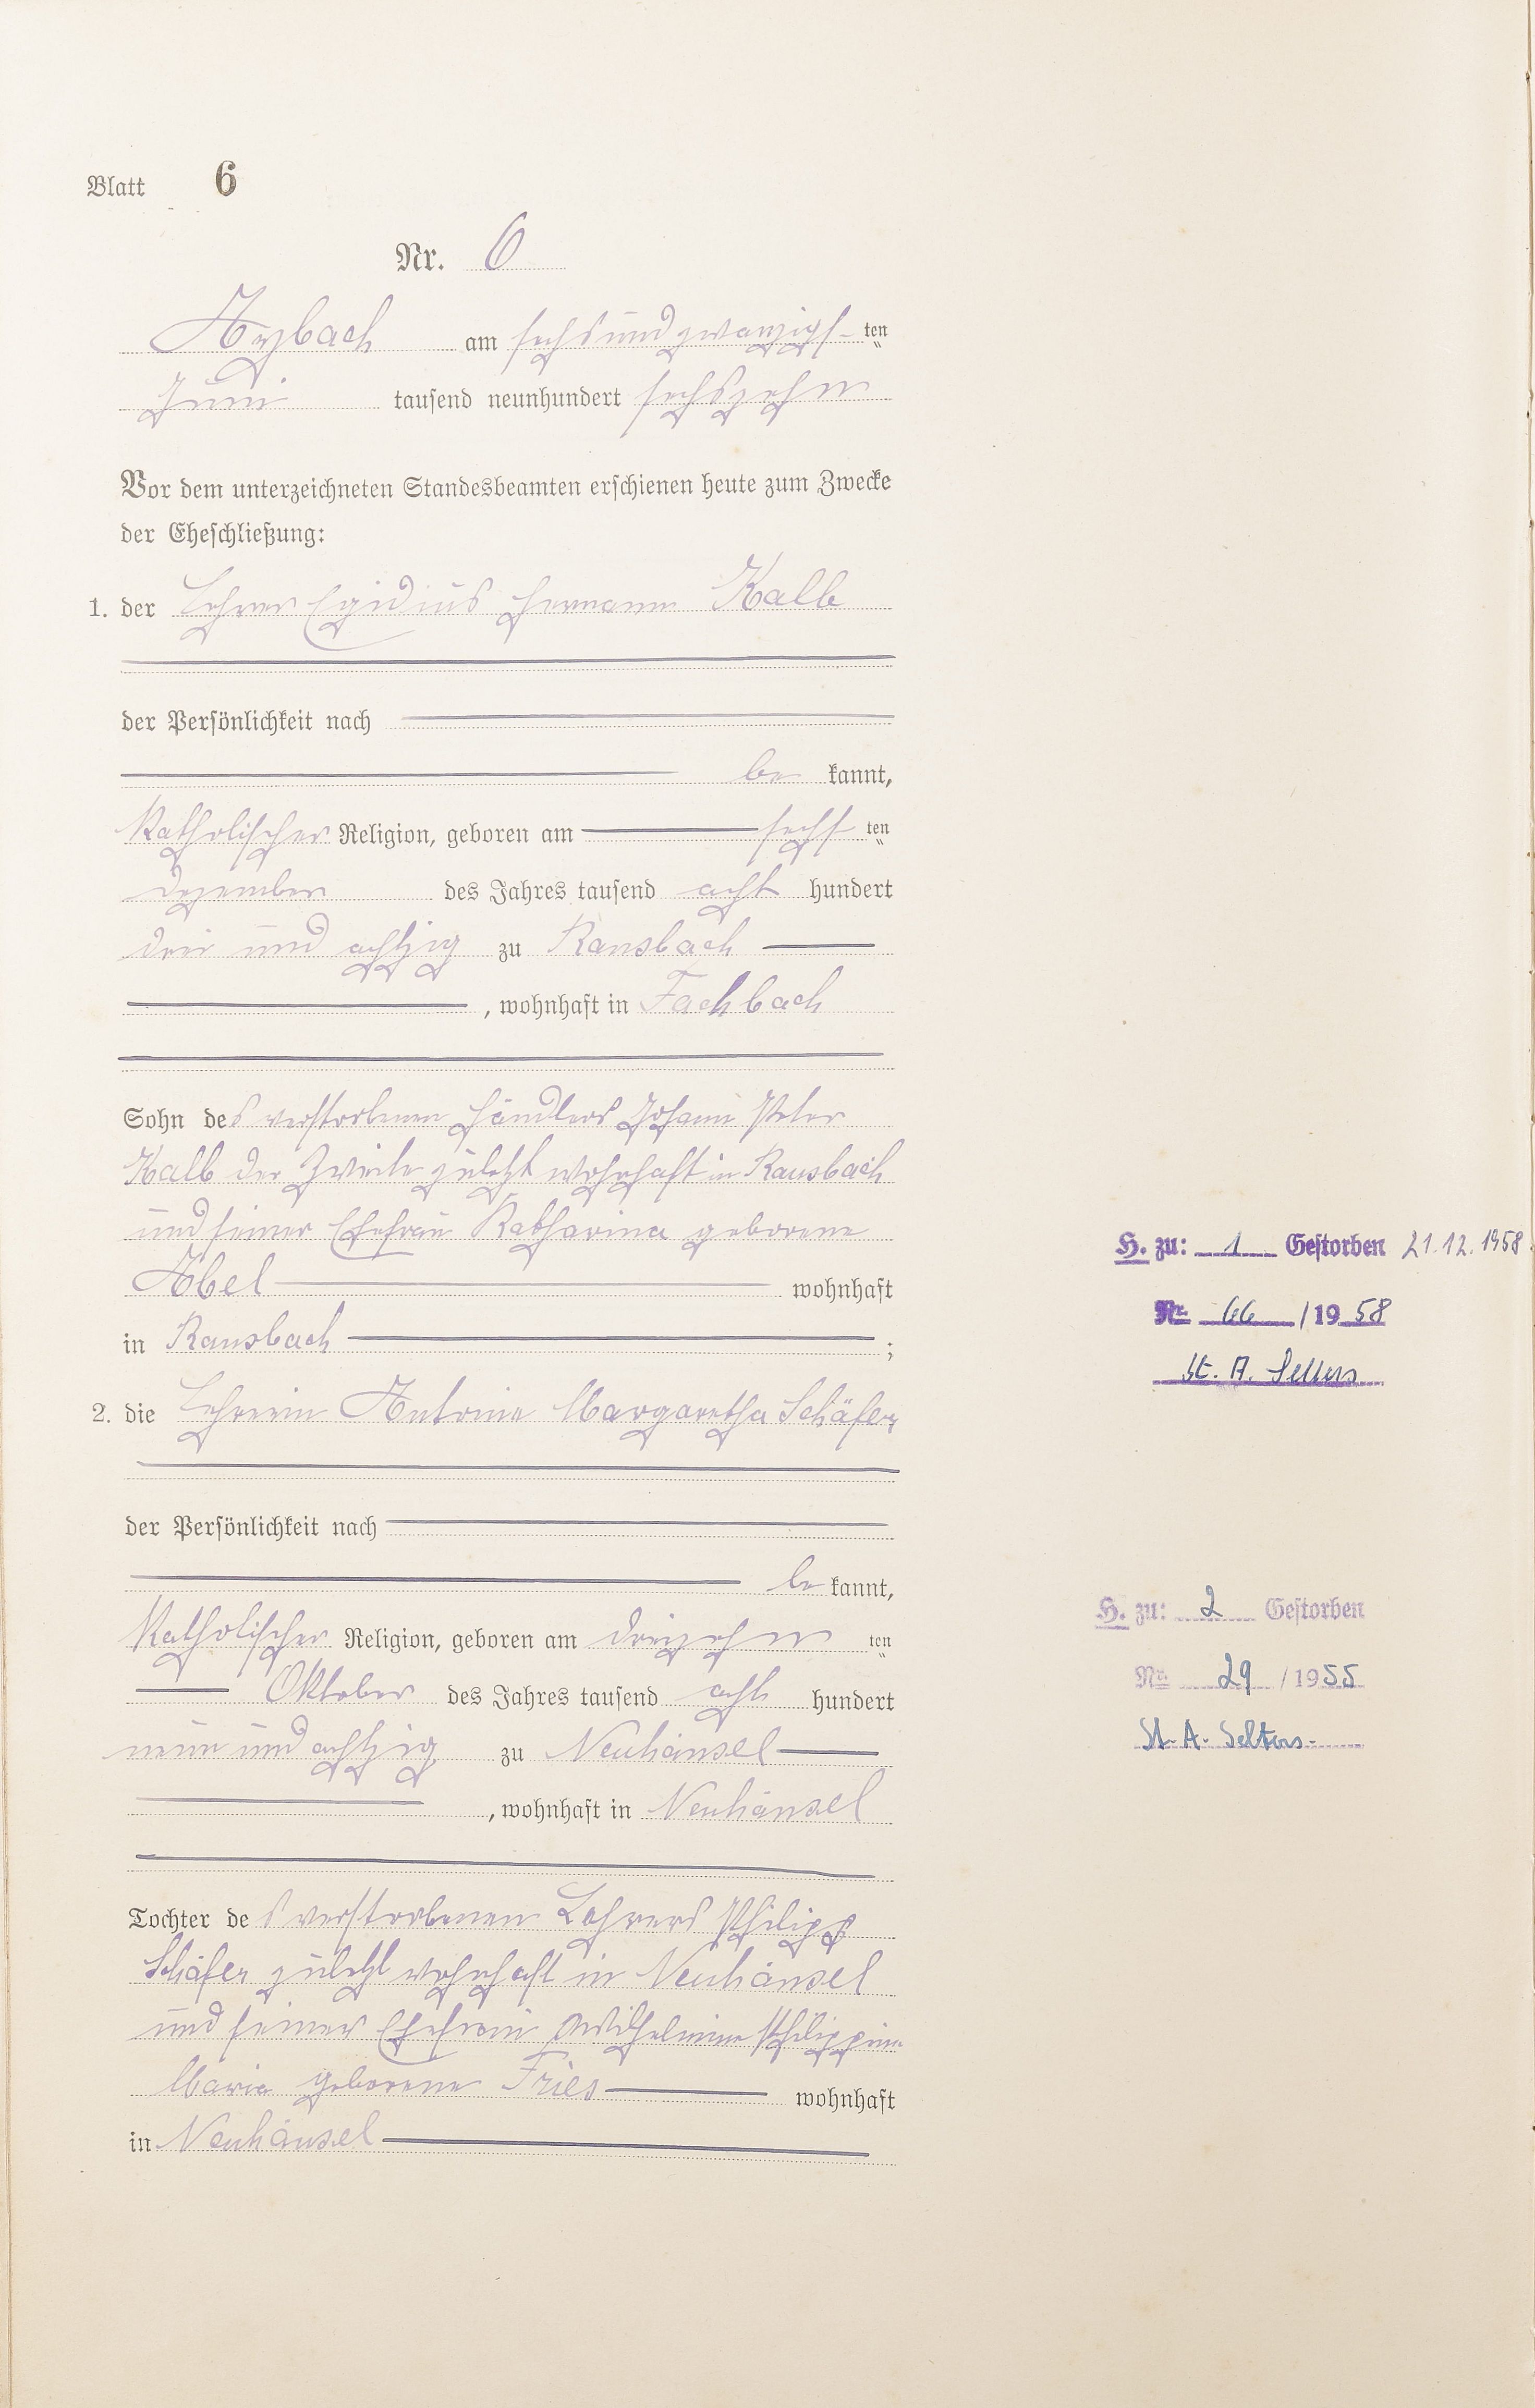 Blatt 6
Nr. 6
Arzbach am sechsundzwanzigsten
Juni tausend neunhundert sechszehn
Vor dem unterzeichneten Standesbeamten erschienen heute zum Zwecke
der Eheschließung:
1. der Lehrer Egidius Hermann Kalb
der Persönlichkeit nach
be kannt,
Katholischer Religion, geboren am sechsten
Dezember des Jahres tausend acht hundert
drei und achtzig zu Ransbach
, wohnhaft in Fachbach
Sohn des verstorbenen Händlers Johann Peter
Kalb der Zweite zuletzt wohnhaft in Ransbach
und seiner Ehefrau Katharina geborene
Abel wohnhaft
in Ransbach ;
2. die Lehrerin Antonie Margaretha Schäfer
der Persönlichkeit nach
be kannt,
Katholischer Religion, geboren am dreizehnten
Oktober des Jahres tausend acht hundert
neun und achtzig zu Neuhäusel
, wohnhaft in Neuhäusel
Tochter des verstorbenen Lehrers Philipp
Schäfer zuletzt wohnhaft in Neuhäusel
und seiner Ehefrau Wilhelmine Philippine
Maria geborene Fries wohnhaft
in Neuhäusel
H. zu: 1 Gestorben 21.12.1958.
Nr. 66 / 19 58
St. A. Selters
H. zu: 2 Gestorben
Nr. 29 / 1955
St. A. Selters.